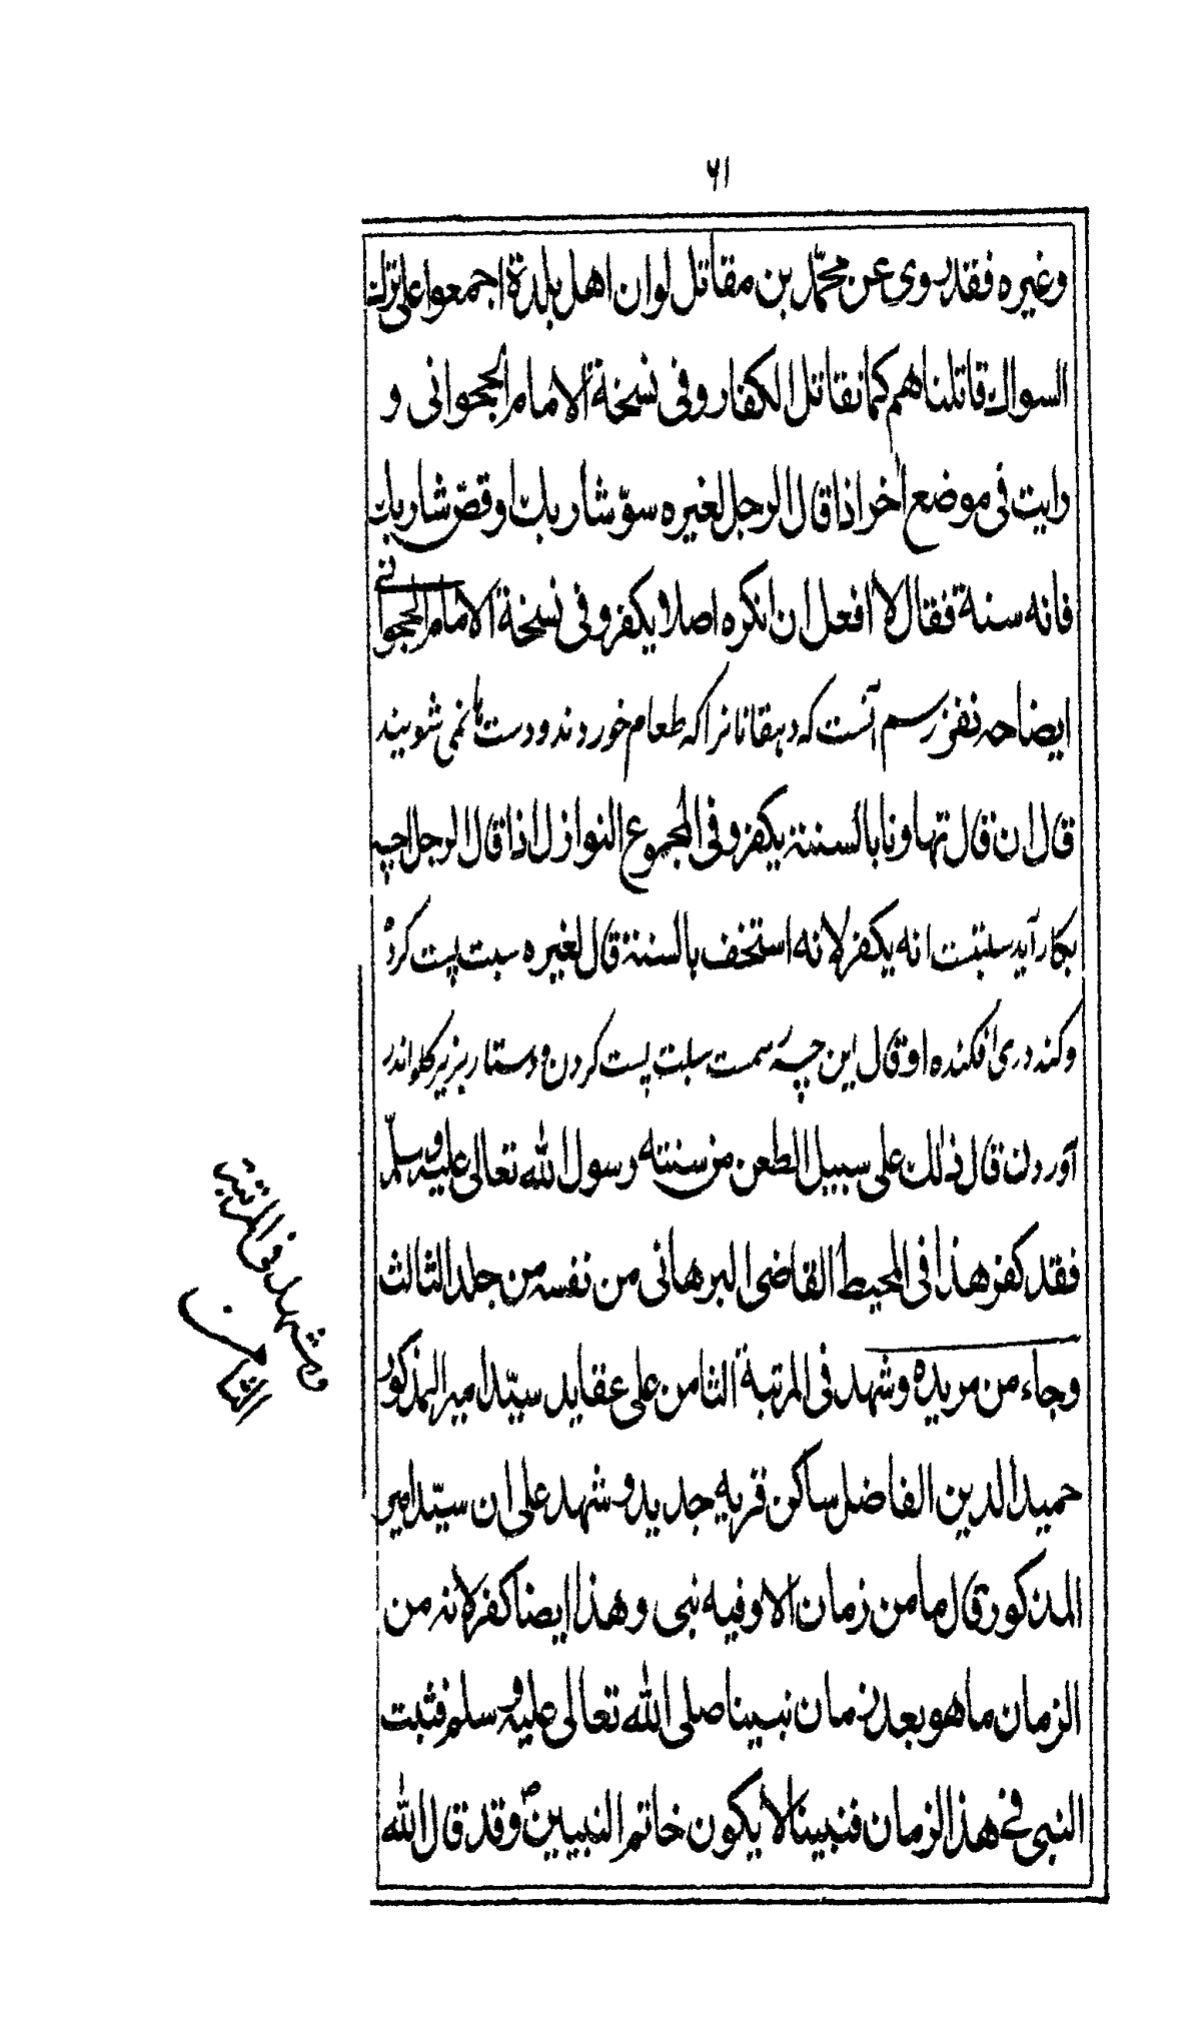 ۶۱
وغيره فقد روى عن محمّد بن مقاتل لو ان اهل بلدة اجمعوا على ترك
السواك قاتلناهم كما نقاتل الكفار وفى نسخة الامام الججوانى و
رايت فى موضع اخر اذا قال الرجل لغيره سوّ شاربك او قصّ شاربك
فانه سنة فقال لا افعل ان انكره اصلا يكفر وفى نسخة الامام الججوانے
ايضا حه نغز رسم آنست كه دهقانانرا كه طعام خوردند و دستها نمى شويند
قال ان قال تهاونا بالسنة يكفر وفى المجموع النوازل اذا قال الرجل چه
بكار آيد سبلت انه يكفر لانه استخف بالسنة قال لغيره سبت پست كردہ
وكند درى افكنده او قال اين چه سمت سبلت پست كردن و دستار بزير گلو اندر
آوردن قال ذلك على سبيل الطعن من سنته رسول الله تعالى عليه وسلّم
فقد كفر هذا فى المحيط القاضى البرهانى من نفسه من جلد الثالث
وجاء من مريده وشهد فى المرتبة الثامن على عقايد سيّد امير المذكور
حميد الدين الفاضل ساكن قريه جديد و شهد على ان سيّد امير
المذكور قال ما من زمان الا وفيه نبى وهذا ايضا كفر لانه من
الزمان ما هو بعد زمان نبينا صلى الله تعالى عليه وسلم فثبت
النبى فے هذا الزمان فنبينا لا يكون خاتم النبيين ص وقد قال الله
ومشهد فى المرتبة
الثامن